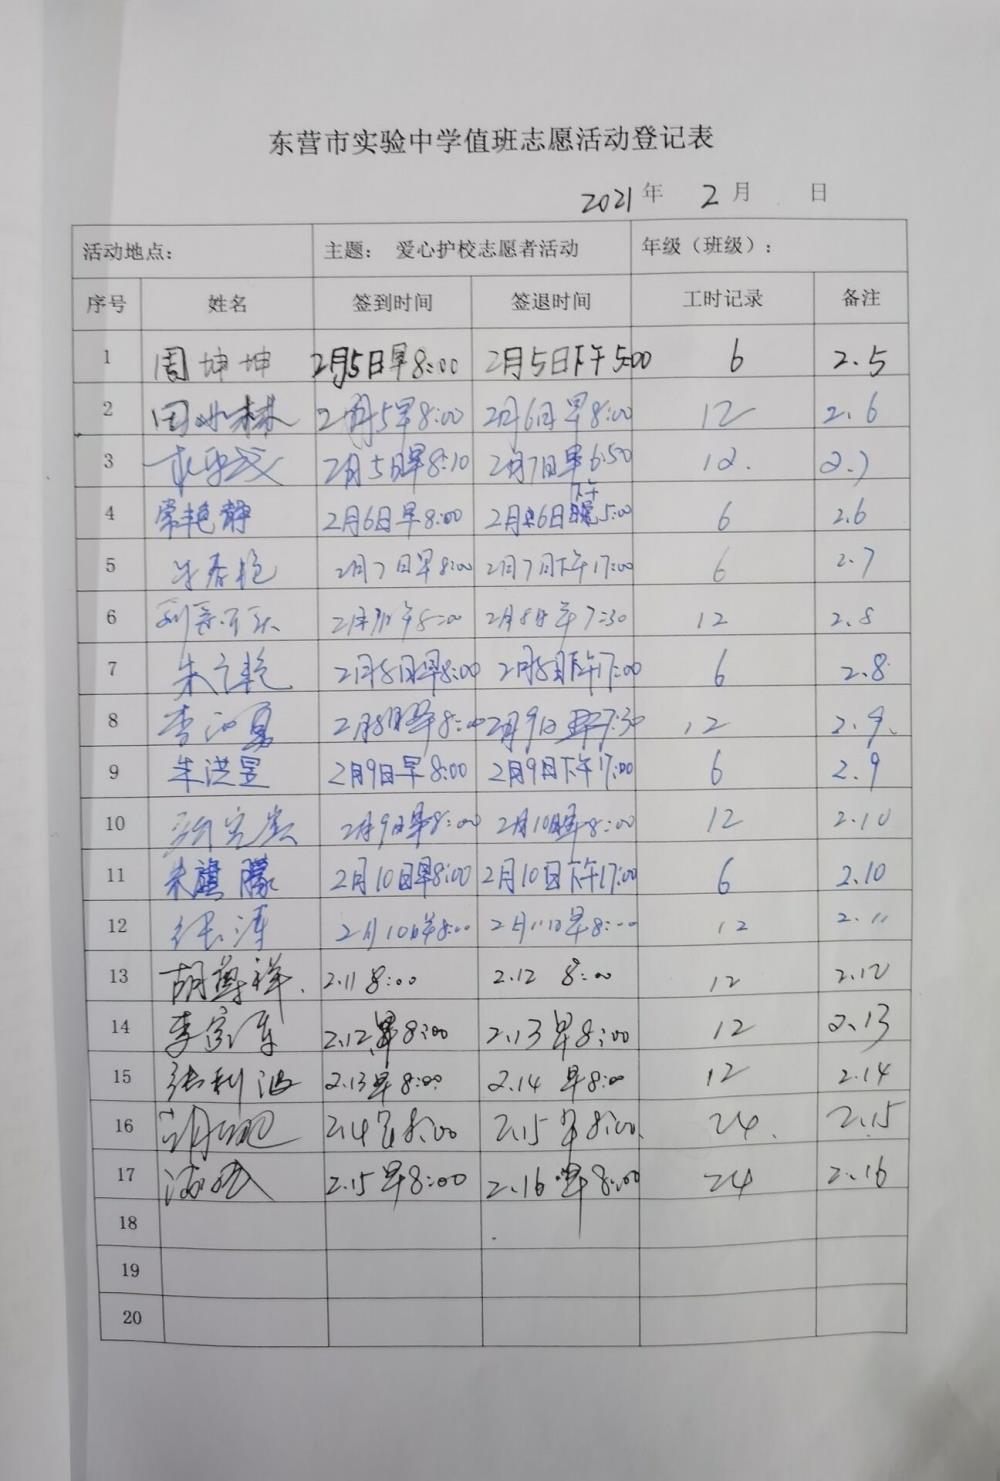 东营市实验中学值班志愿活动登记表
2021 年 2 月 日
活动地点： 主题： 爱心护校志愿者活动 年级（班级）：
序号 姓名 签到时间 签退时间 工时记录 备注
1 周坤坤 2月5日早8:00 2月5日下午5:00 6 2.5
2 2月5早8:00 2月6日早8:00 12 2.6
3 2月5日早8:10 2月7日早6:50 12. 2.7
4 常艳静 2月6日早8:00 2月6日下午5:00 6 2.6
5 2月7日早8:00 2月7日下午17:00 6 2.7
6 8:00 2月8日早7:30 12 2.8
7 朱 艳 2月8日早8:00 2月8日下午17:00 6 2.8
8 李 2月8日早8:00 2月9日早7:30 12 2.9.
9 朱洪昱 2月9日早8:00 2月9日下午17:00 6 2.9
10 2月9日早8:00 2月10日早8:00 12 2.10
11 朱旗朦 2月10日早8:00 2月10日下午17:00 6 2.10
12 张涛 2月10日早8:00 早8:00 12 2.11
13 胡尊祥. 2.11 8:00 2.12 8:00 12 2.12
14 李 2.12.早8:00 2.13早8:00 12 2.13
15 张利波 2.13早8:00 2.14 早8:00 12 2.14
16 2.14早8:00 2.15早8:00. 24. 2.15
17 2.15早8:00 2.16早8:00 24 2.16
18
19
20